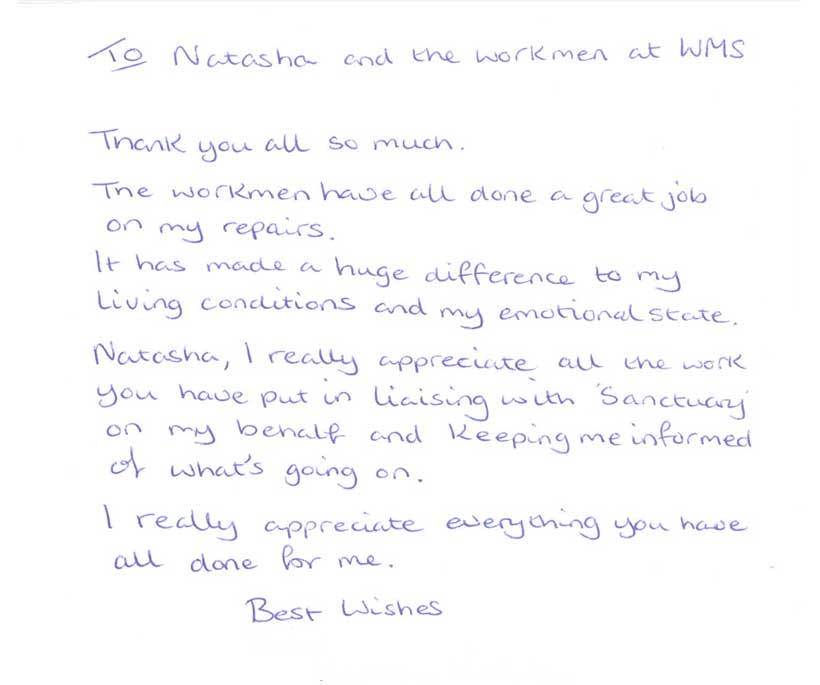 To Natasha and the workmen at WMS
Thank you all so much.
The workmen have all done a great job
on my repairs.
It has made a huge difference to my
living conditions and my emotional state.
Natasha, I really appreciate all the work
you have put in liaising with 'Sanctuary'
on my behalf and keeping me informed
of what's going on.
I really appreciate everything you have
all done for me.
Best Wishes